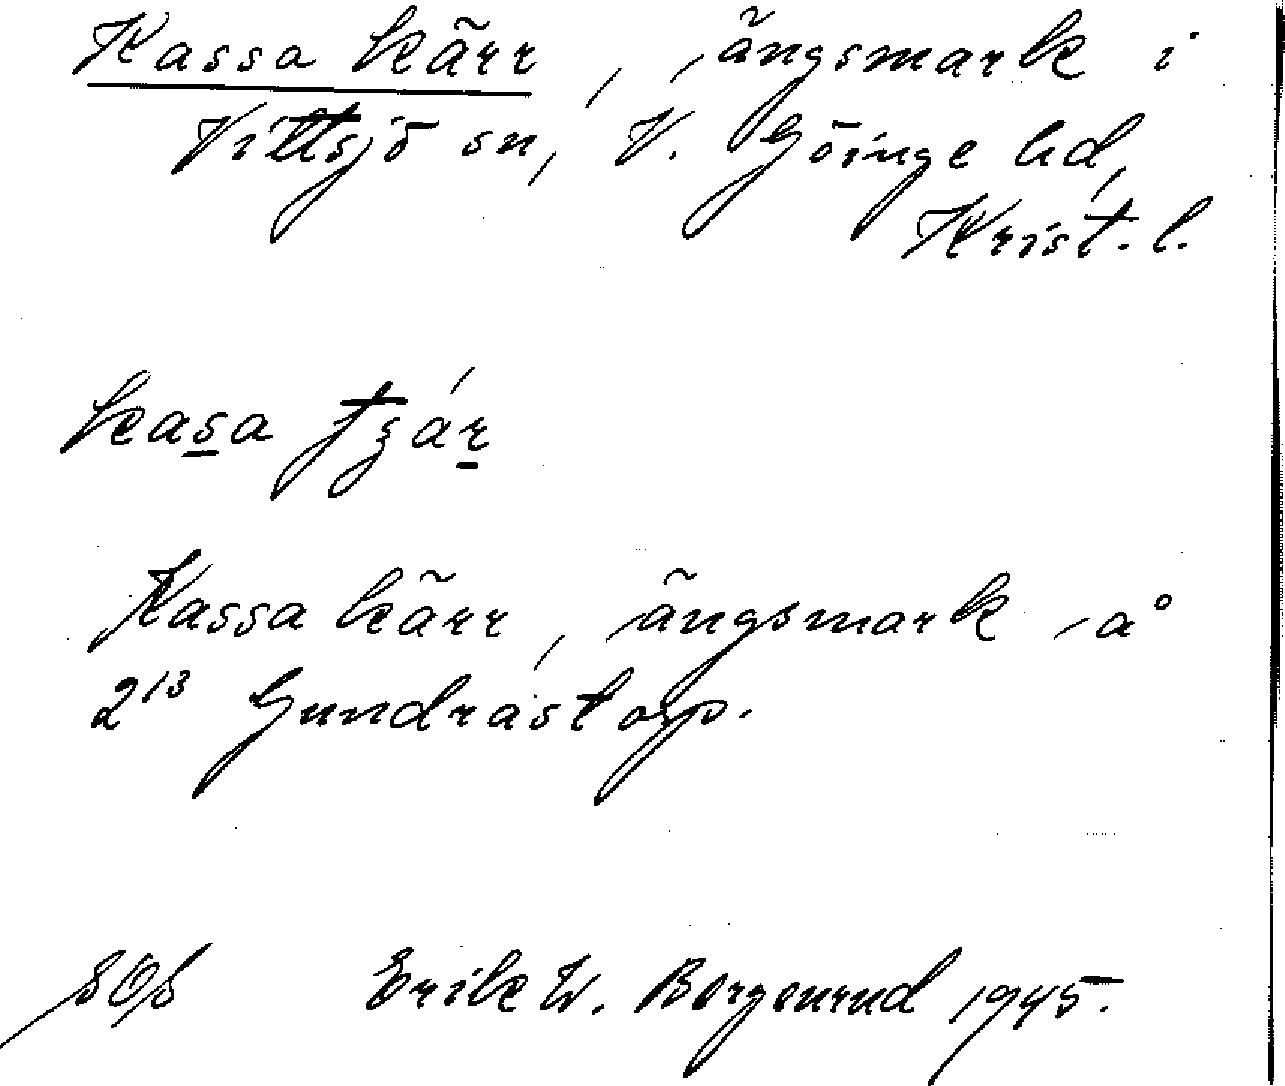 Kassa kärr, ängsmark i
Vittsjö sn, V. Göinge hd,
Krist. l.
kasa tʒár
Kassa kärr, ängsmark å
2¹³ Gundrastorp.
Erik W. Bergenrud 1945.